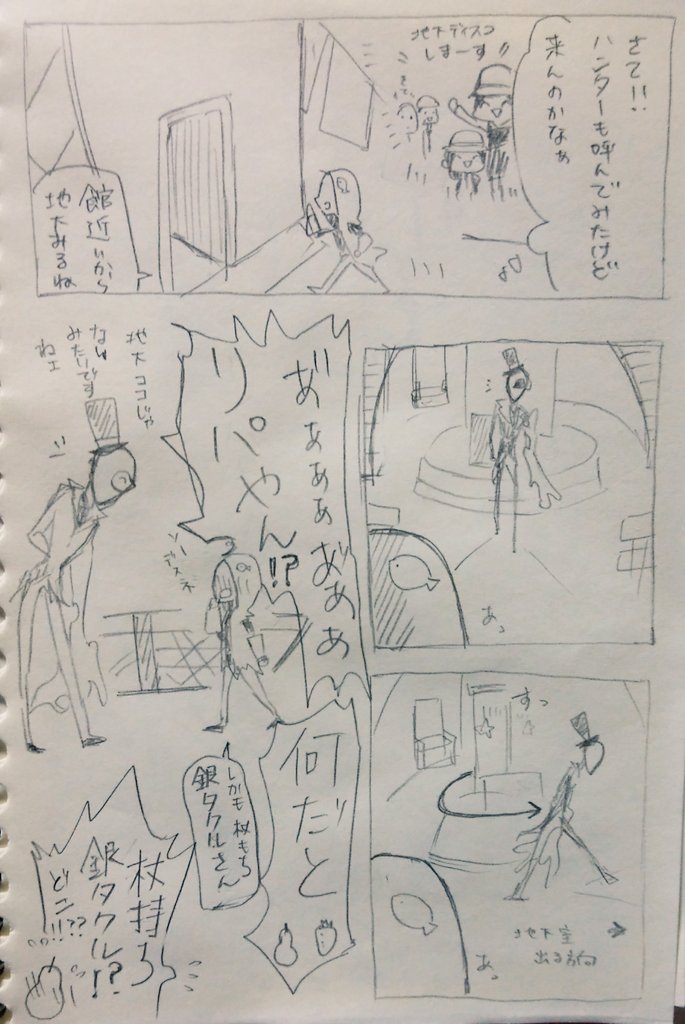 さて!!
ハンターも呼んでみたけど
来んのかなぁ
地下ディスコ
しまーす
館近いから
地下みるね
あっ
すっ
地下室
出る方向
あっ
あぁぁぁあぁぁ
リパやん!?
ソー
デスネ
地下ココじゃ
ないみたいです
ねェ
何だと
しかも杖もち
銀タクルさん
杖持ち
銀タクル!?
どこ!!??